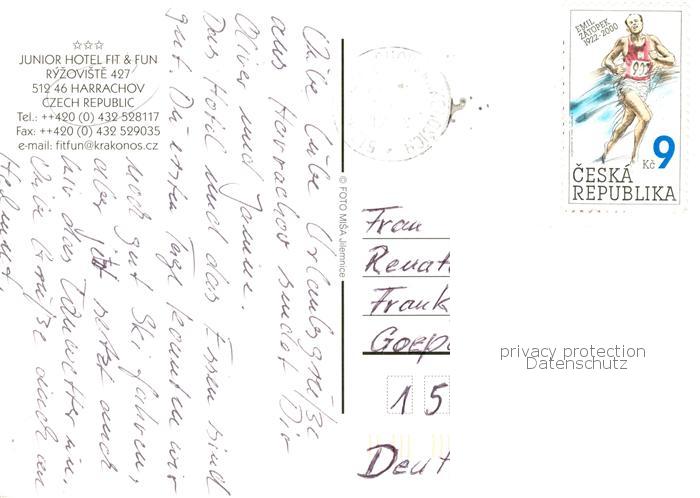 ☆☆☆
JUNIOR HOTEL FIT & FUN
RÝŽOVIŠTĚ 427
512 46 HARRACHOV
CZECH REPUBLIC
Tel.: ++420 (0) 432 528117
Fax: ++420 (0) 432 529035
e-mail: fitfun@krakonos.cz
Liebe Urlaubsgrüße
aus Harrachov sendet Dir
Oliver und Janine.
Das Hotel und das Essen sind
gut. Die ersten Tage konnten wir
noch gut Ski fahren,
aber jetzt setzt auch
hier das Tauwetter ein.
Liebe Grüße auch an
Helmut
© FOTO MIŠA Jilemnice
EMIL
ZÁTOPEK
1922-2000
903
Kč 9
ČESKÁ
REPUBLIKA
Frau
Renat
Frank
Goep
15
Deut
privacy protection
Datenschutz